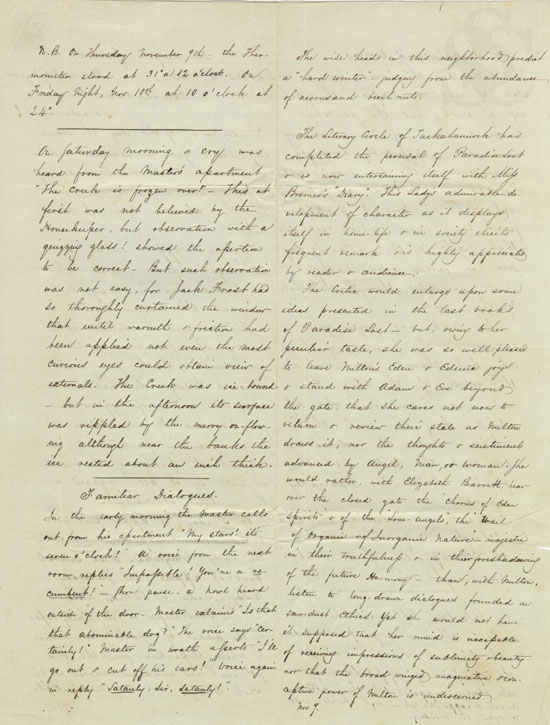 N.B. On Thursday November 9th – the Ther-
mometer stood at 31° at 12 o'clock. On
Friday night, Nov. 10th at 10 o'clock at
24°
On Saturday morning a cry was
heard from the Master's apartment
"The Creek is frozen over!" – This at
first was not believed by the
Housekeeper, but observation with a
quizzing glass! showed the assertion
to be correct – But such observation
was not easy, for Jack Frost had
so thoroughly curtained the window
that until warmth & friction had
been applied not even the most
curious eyes could obtain view of
externals. The Creek was ice-bound
– but in the afternoon its surface
was rippled by the merry on-flow-
ing although near the banks the
ice rested about an inch thick.
Familiar Dialogues.
In the early morning the Master calls
out from his apartment "My stars! its
seven o'clock!" A voice from the next
room replies "Impossible! You're a
cumbent!" – Short pause – a howl heard
outside of the door – Master exclaims "Is that
that abominable dog?" The voice says "Cer-
tainly!" Master in wrath asserts "I'll
go out & cut off his ears! Voice again
in reply "Sataniy, Sir, sataniy!"
The wise heads in this neighborhood predict
a "hard winter" judging from the abundance
of acorns and beech nuts.
The Literary Circle of Tuckahannock has
completed the perusal of Paradise Lost
& is now entertaining itself with Miss
Bremer's "Diary". This Lady's admirable de-
velopment of character as it displays
itself in home-life & in society elicits
frequent remark & is highly appreciated
by reader & audience.
The Critic would enlarge upon some
ideas presented in the last books
of Paradise Lost – but, owing to her
peculiar taste, she was so well pleased
to leave Milton's Eden & Edenic joys
& stand with Adam & Eve beyond
the gate, that she cares not now to
return & review their state as Milton
draws it, nor the thoughts & sentiments
advanced by Angel, Man, or woman. She
would rather, with Elizabeth Barrett, hear
over the closed gate the chorus of Eden
spirits & of the "Lone Angels", the Wail
of Organic & of Inorganic Nature – majestic
in their truthfulness & in their foreshadowing
of the future Harmony – than, with Milton,
listen to long-drawn dialogues founded on
saw-dust Ethics. Yet she would not have
it supposed that her mind is incapable
of receiving impressions of sublimity & beauty
nor that the broad winged imaginative & con-
ceptive power of Milton is undiscerned.
Nov. 9.